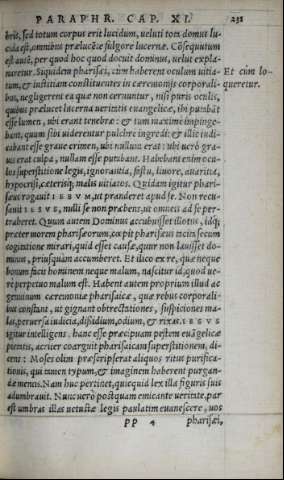 PARAPHR. CAP. XI. 231
bris, sed totum corpus erit lucidum, ueluti tota domus lu-
cida est, omnibus prælucẽte fulgore lucernæ. Cõsequutum
est autẽ, per quod hoc quod docuit dominus, uelut expla-
naretur. Siquidem pharisæi, cũm haberent oculum uitia-
Et cũm lo-
tum, & iustitiam constituentes in ceremonijs corporali-
queretur.
bus, negligerent ea quæ non cernuntur, nisi puris oculis,
quibus prælucet lucerna ueritatis euangelicæ, ibi putabãt
esse lumen, ubi erant tenebræ: & tum maxime impinge-
bant, quum sibi uiderentur pulchre ingredi: & illic iudi-
cabant esse graue crimen, ubi nullum erat: ubi uerò gra-
uis erat culpa, nullam esse putabant. Habebant enim ocu-
los superstitione legis, ignorantia, fastu, liuore, auaritia,
hypocrisi, cæterisq; malis uitiatos. Quidam igitur phari-
sæus rogauit IESVM, ut pranderet apud se. Non recu-
sauit IESVS, nulli se non præbens, ut omneis ad se per-
traheret. Quum autem Dominus accubuisset illotus, idq;
præter morem pharisæorum, cœpit pharisæus tacitis secum
cogitatione mirari, quid esset causæ, quur non lauisset do-
minus, priusquàm accumberet. Et illico ex re, quæ neque
bonum facit hominem neque malum, nascitur id, quod ue-
rè perpetuò malum est. Habent autem proprium illud ac
genuinum cæremoniæ pharisaicæ, quæ rebus corporali-
bus constant, ut gignant obtrectationes, suspitiones ma-
las, peruersa iudicia, dissidium, odium, & rixas. IESVS
igitur intelligens, hanc esse præcipuam pestem euãgelicæ
pietatis, acriter coarguit pharisaicam superstitionem, di-
cens: Moses olim præscripserat aliquos ritus purifica-
tionis, qui tamen typum, & imaginem haberent purgan-
dæ mentis. Nam huc pertinet, quicquid lex illa figuris suis
adumbrauit. Nunc uerò postquam emicante ueritate, par
est umbras illas uetustæ legis paulatim euanescere, uos
PP 4 pharisæi,